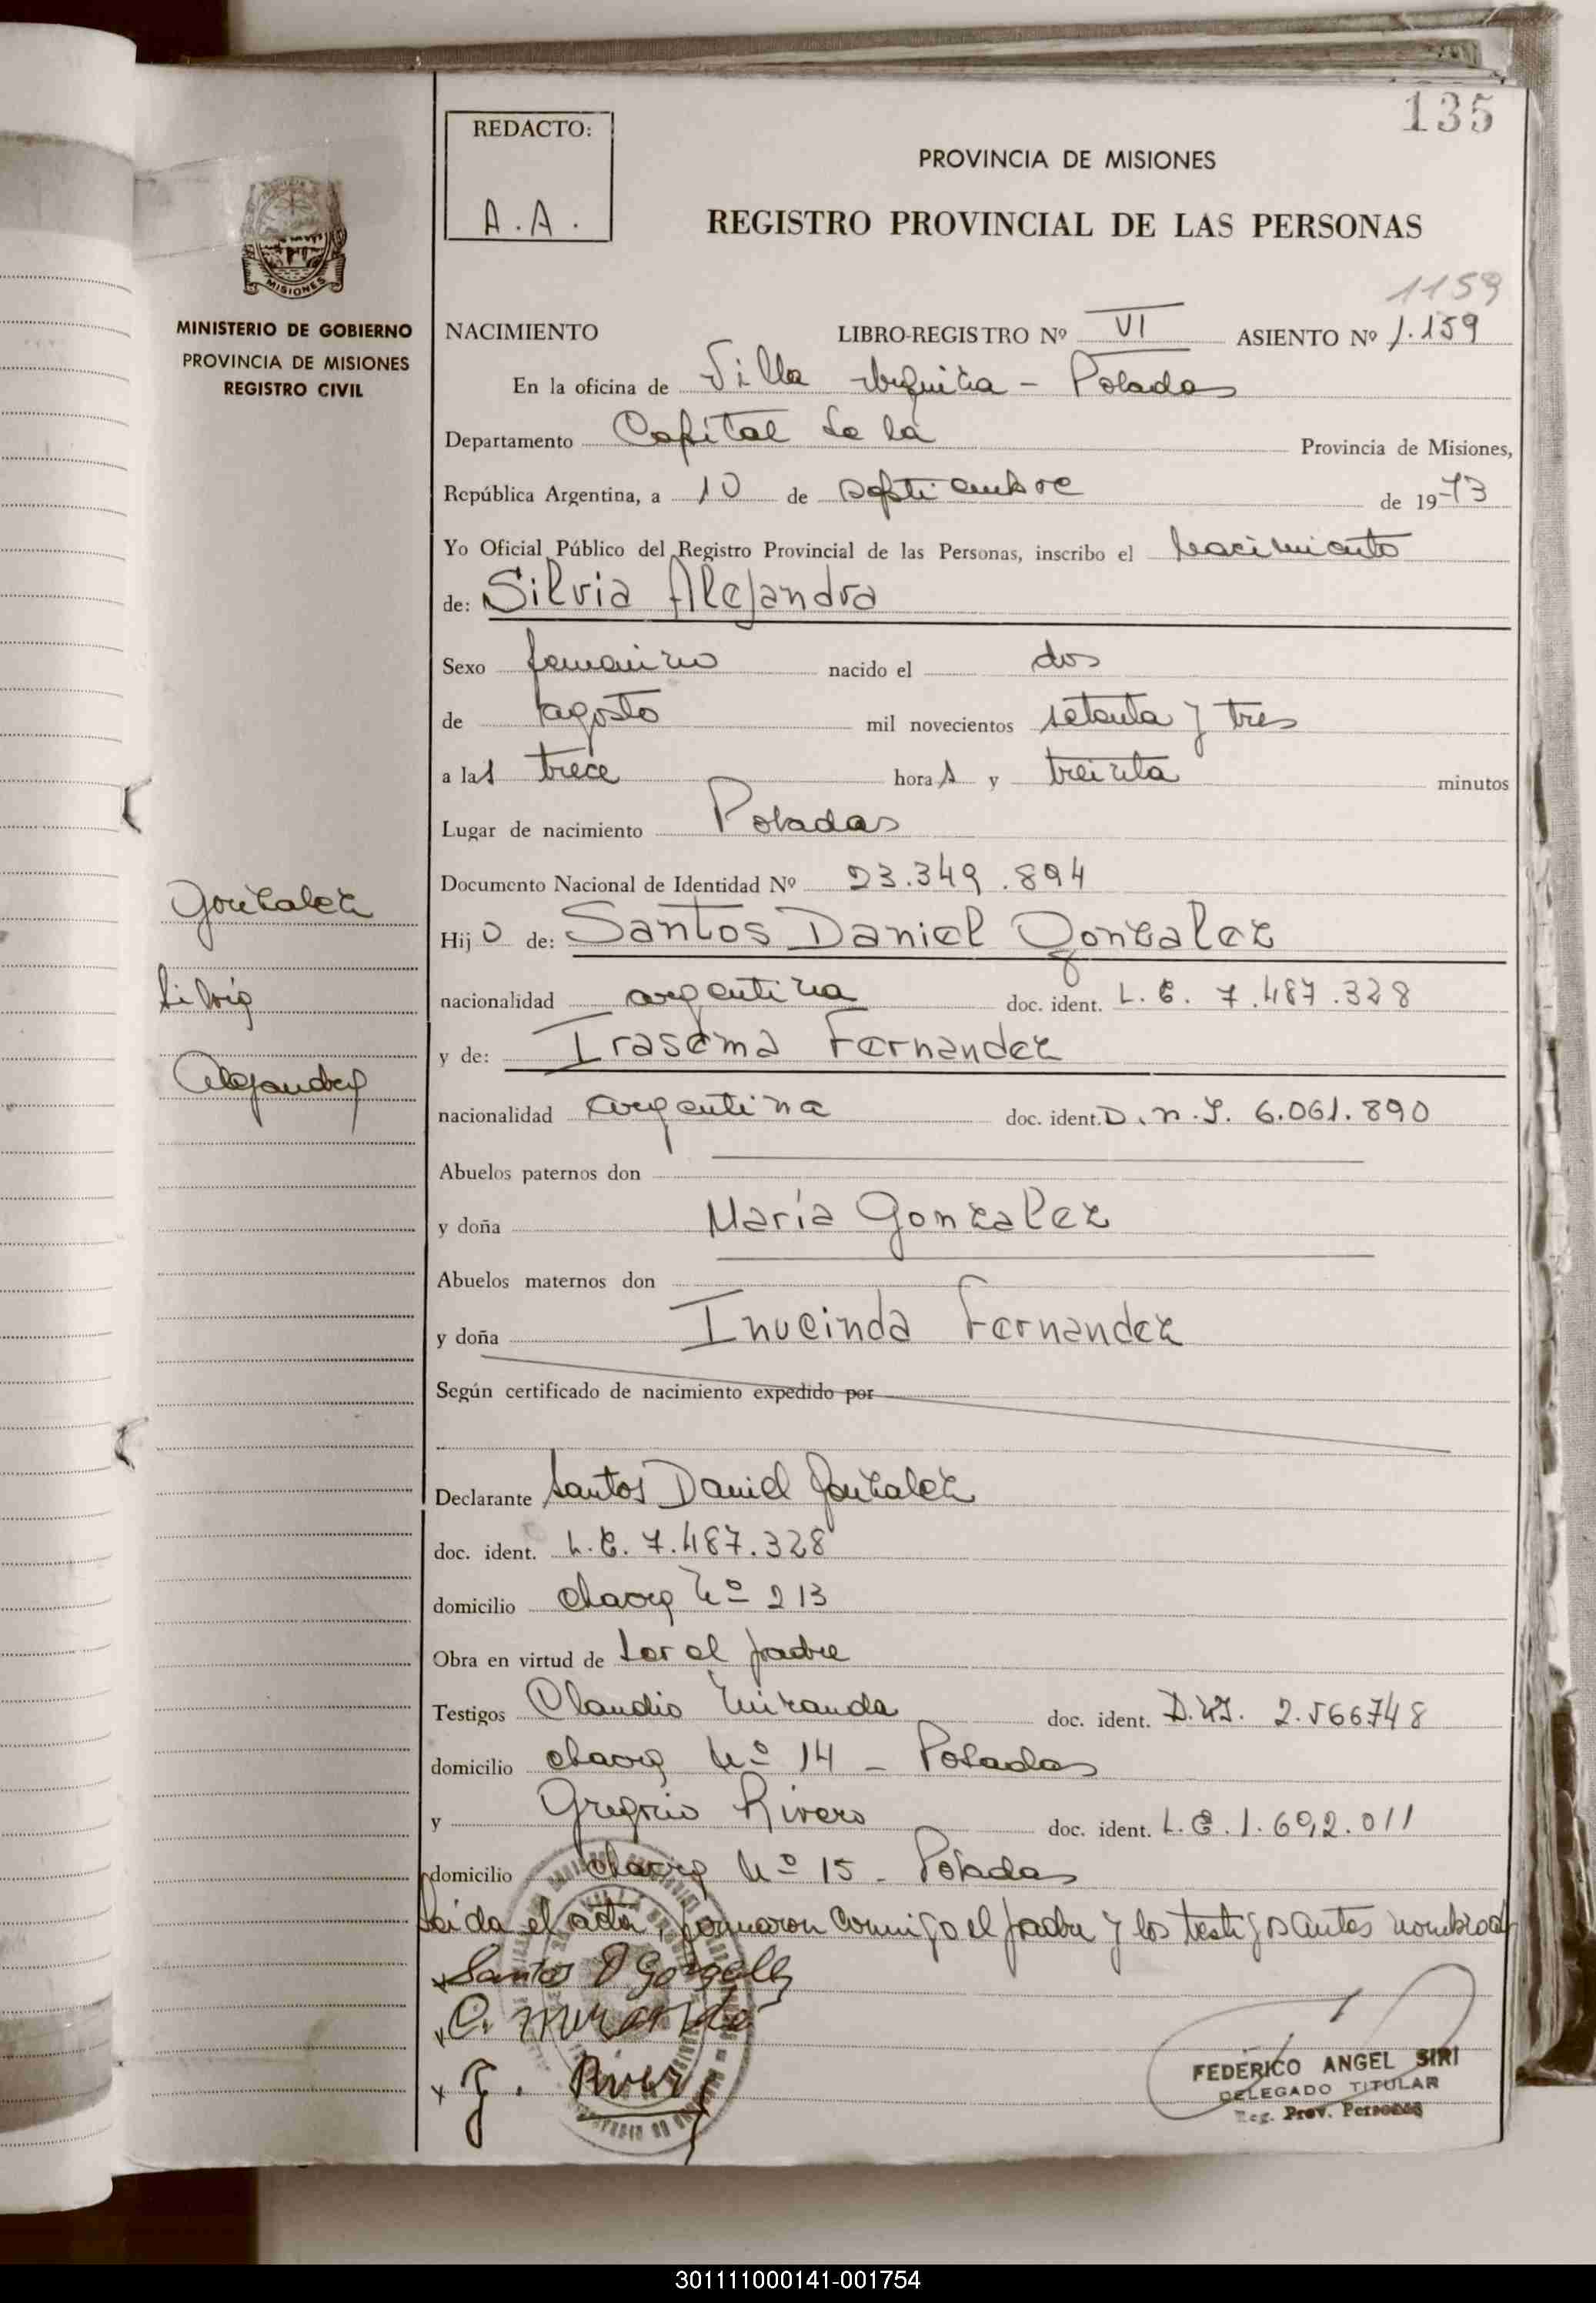 135
REDACTO:
A.A.
PROVINCIA DE MISIONES
REGISTRO PROVINCIAL DE LAS PERSONAS
MISIONES
MINISTERIO DE GOBIERNO
PROVINCIA DE MISIONES
REGISTRO CIVIL
1159
NACIMIENTO LIBRO-REGISTRO Nº VI ASIENTO Nº 1.159
En la oficina de Villa Urquiza - Posadas
Departamento Capital de la Provincia de Misiones,
República Argentina, a 10 de septiembre de 1973
Yo Oficial Público del Registro Provincial de las Personas, inscribo el nacimiento
de: Silvia Alejandra
Sexo femenino nacido el dos
de agosto mil novecientos setenta y tres
a las trece horas y treinta minutos
Lugar de nacimiento Posadas
Documento Nacional de Identidad Nº 23.349.894
Gonzalez
Silvia
Alejandra
Hijo de: Santos Daniel Gonzalez
nacionalidad argentina doc. ident. L.E. 7.487.328
y de: Irasema Fernandez
nacionalidad argentina doc. ident. D.N.I. 6.061.890
Abuelos paternos don
y doña María Gonzalez
Abuelos maternos don
y doña Fernandez
Según certificado de nacimiento expedido por
Declarante Santos Daniel Gonzalez
doc. ident. L.E. 7.487.328
domicilio Nº 213
Obra en virtud de ser el padre
Testigos Claudio Miranda doc. ident. D.N.I. 2.566748
domicilio Nº 14 - Posadas
y Gregorio Rivero doc. ident. L.E. 1.692.011
domicilio Nº 15 - Posadas
Leida el acta, firmaron conmigo el padre y los testigos antes nombrados
Santos D Gonzalez
C. Miranda
G. Rivero
FEDERICO ANGEL SIRI
DELEGADO TITULAR
Reg. Prov. Personas
301111000141-001754